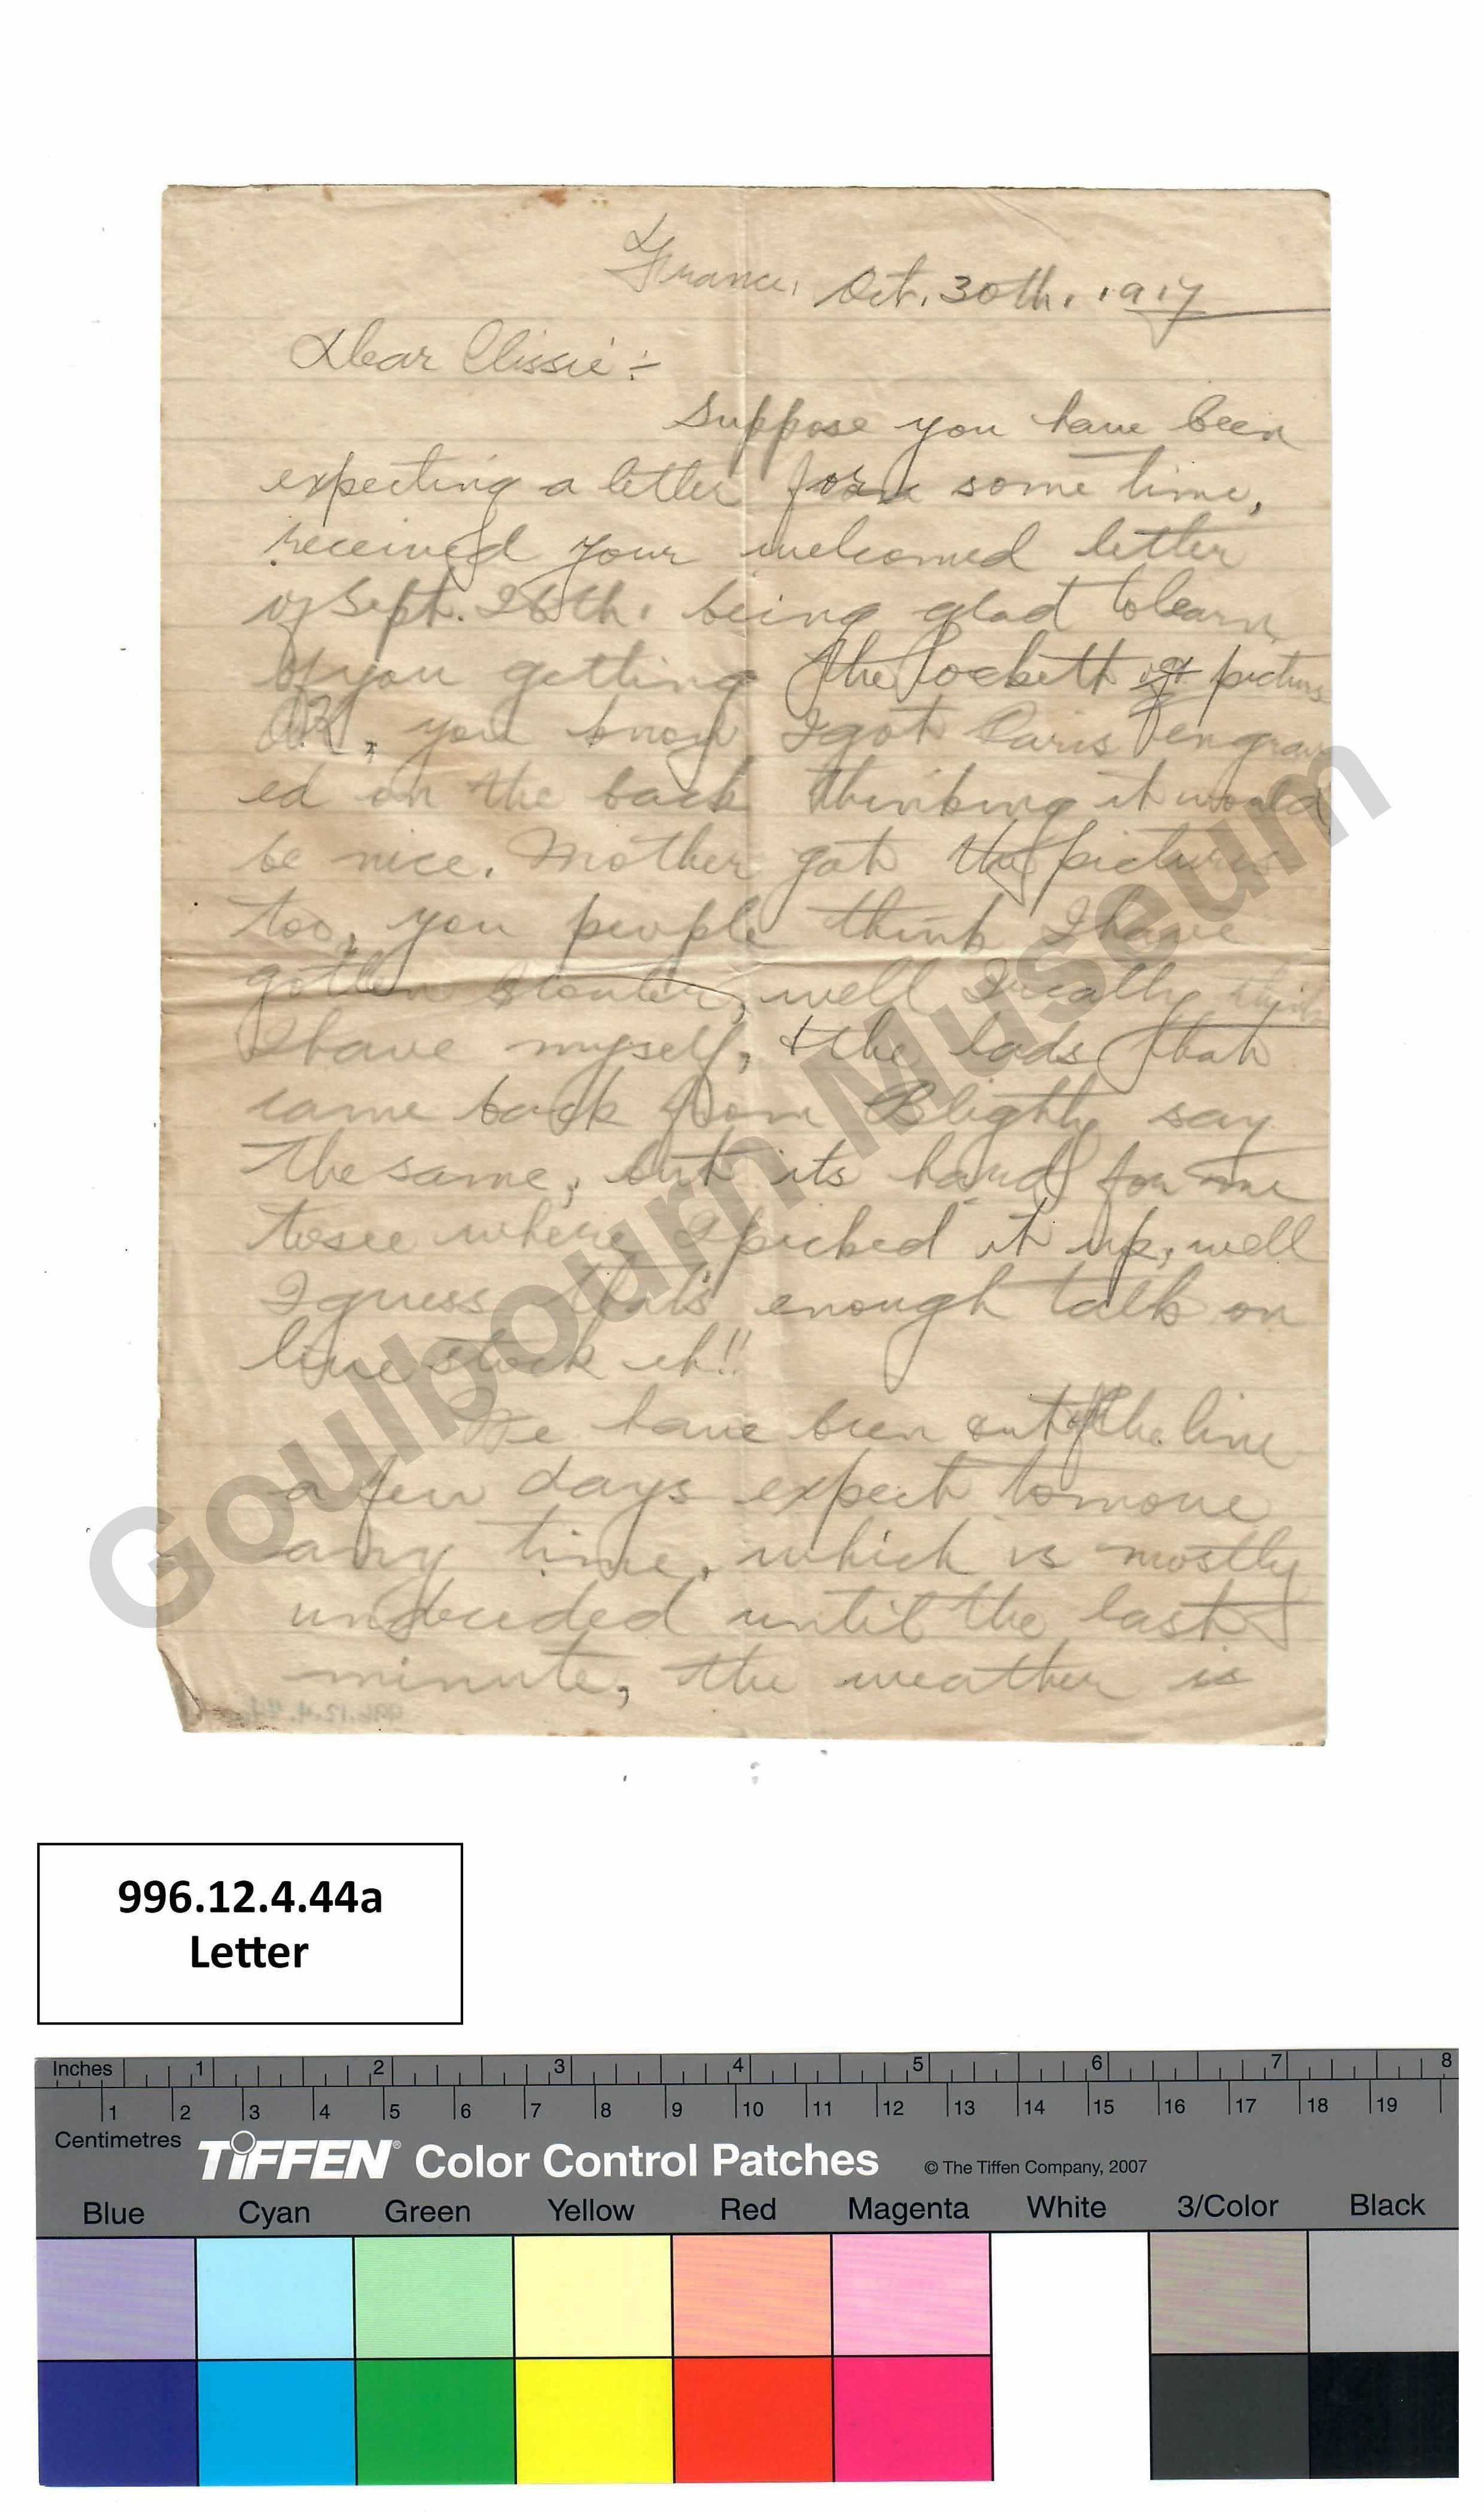 France, Oct. 30th, 1917
Dear Clissie :-
Suppose you have been
expecting a letter for some time,
received your welcomed letter
of Sept. 26th, being glad to learn
of you getting the lockett & picturs
OK, you know I got Paris engrav
ed on the back thinking it would
be nice. Mother got the pictures
too, you people think I have
gotten stouter, well I really think
I have myself, & the lads that
came back from Blighty say
the same, but its hard for me
to see where I picked it up, well
I guess that's enough talk on
live stock eh!!
We have been out of the line
a few days expect to move
any time, which is mostly
undecided until the last
minute, the weather is
996.12.4.44
Goulbourn Museum
996.12.4.44a
Letter
Inches 1 2 3 4 5 6 7 8
1 2 3 4 5 6 7 8 9 10 11 12 13 14 15 16 17 18 19
Centimetres
TIFFEN® Color Control Patches © The Tiffen Company, 2007
Blue Cyan Green Yellow Red Magenta White 3/Color Black